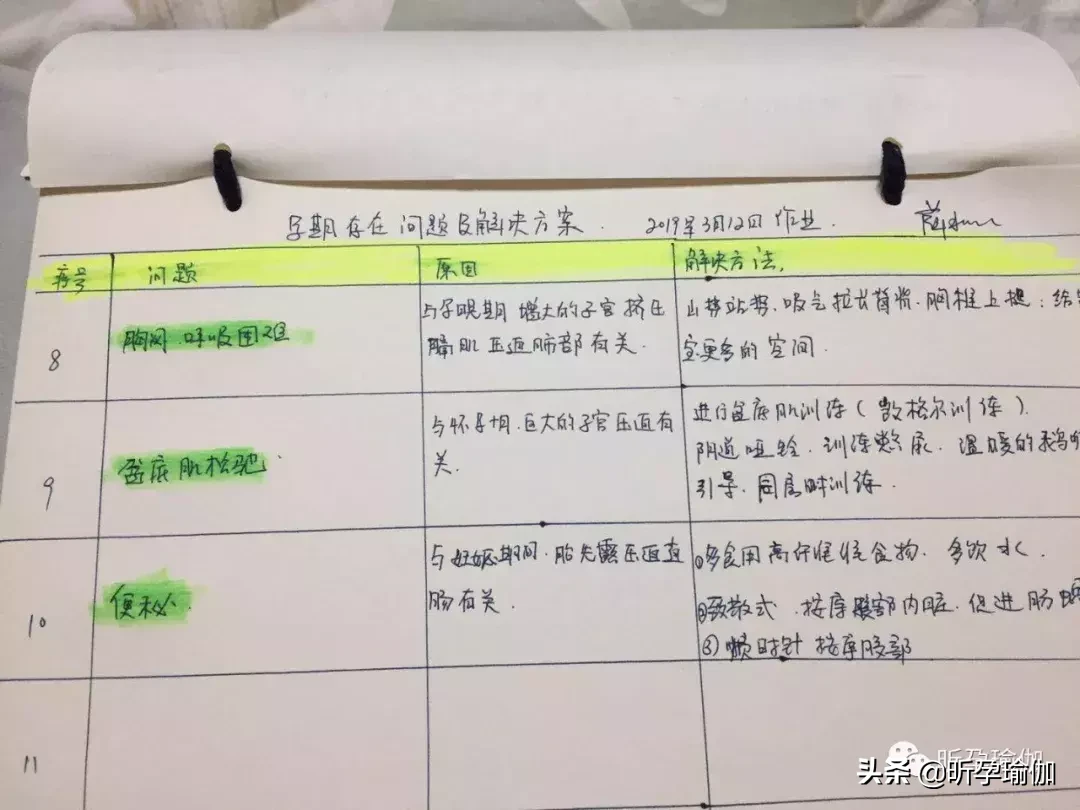 孕期存在问题及解决方案. 2019年3月12日 作业.
序号 问题 原因 解决方法.
8 胸闷.呼吸困难 与孕晚期增大的子宫挤压膈肌压迫肺部有关. 山式站势.吸气拉长脊柱.胸椎上提:给
更多的空间.
9 盆底肌松驰. 与怀孕期.巨大的子宫压迫有关. 进行盆底肌训练(凯格尔训练).
阴道哑铃.训练憋尿.温暖的
引导.同房时训练.
10 便秘. 与妊娠期间.胎先露压迫直肠有关. ①多食用高纤维食物.多饮水.
② 按摩腹部内脏.促进肠
③顺时针按摩腹部
11
昕孕瑜伽
头条 @昕孕瑜伽